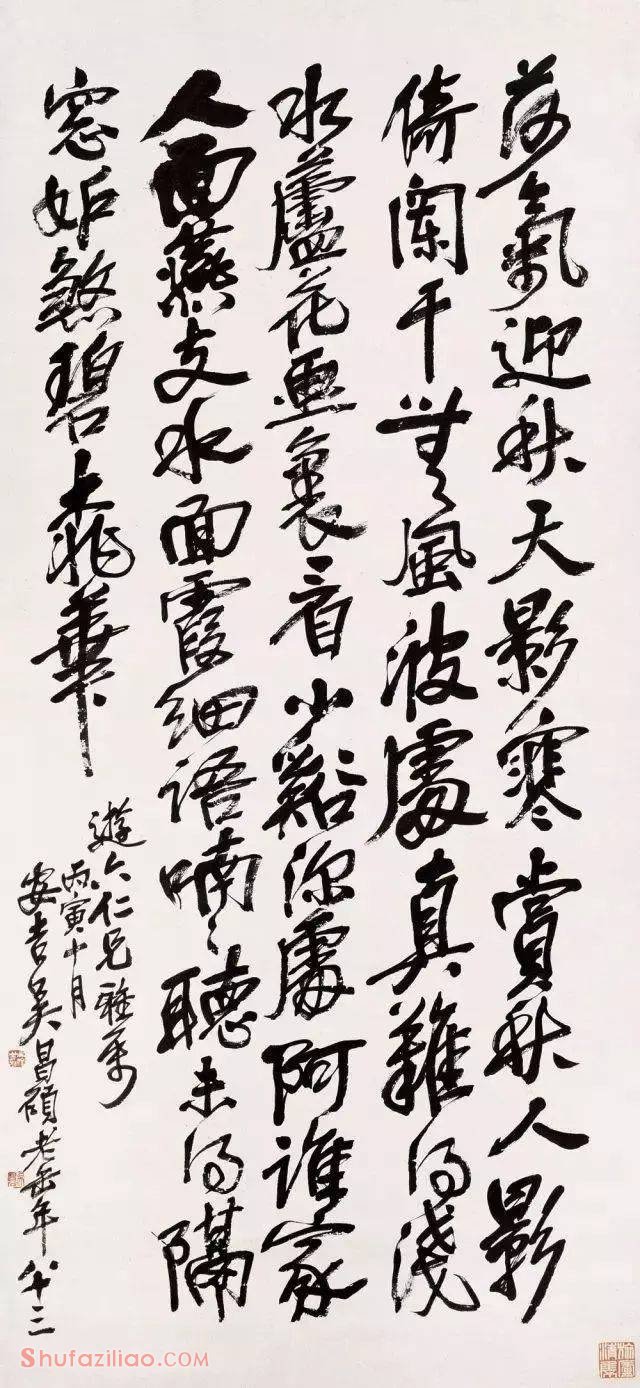 荷氣迎秋天影寒賞秋人影
倚闌干無風波處真難得淺
水蘆花畫裏看小谿深處阿誰家
人面燕支水面霞細語喃〻聽未得隔
窓妒煞碧桃華
遊六仁兄雅屬
丙寅十月
安吉吳昌碩老缶年八十三
Shufaziliao.com